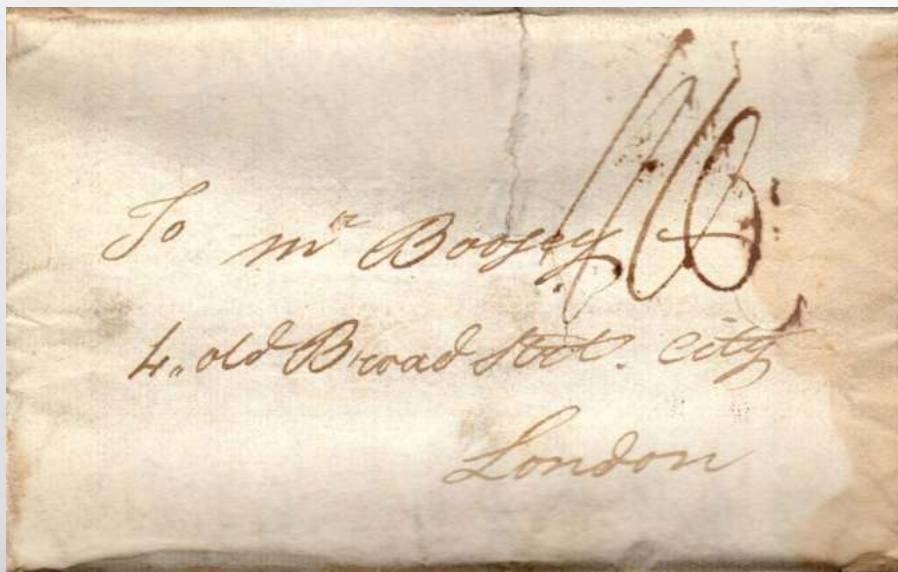 To Mr Boosey
4. old Broad Street. City
London